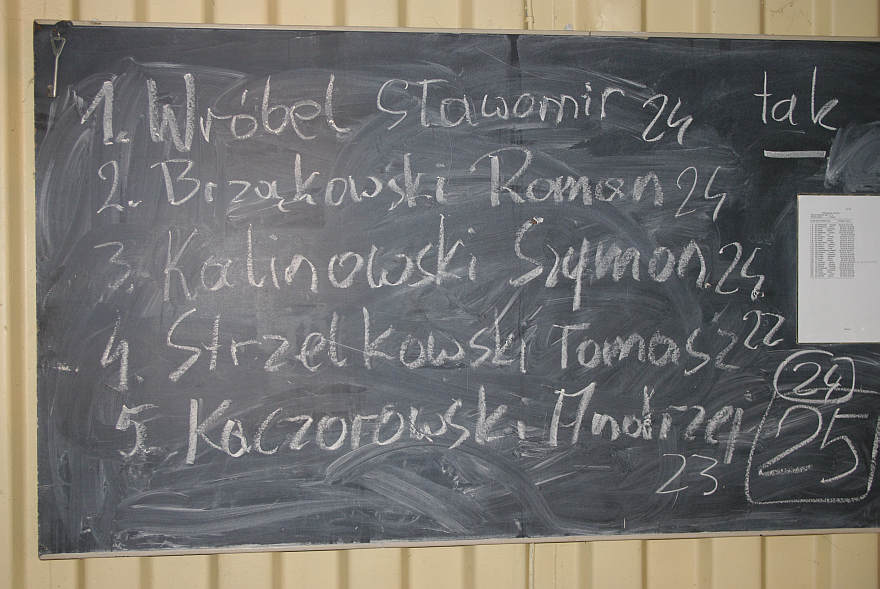 1. Wróbel Sławomir 24 tak
2. Brząkowski Roman 24
3. Kalinowski Szymon 24
4. Strzelkowski Tomasz 22
24
5. Kaczorowski Andrzej 25
23